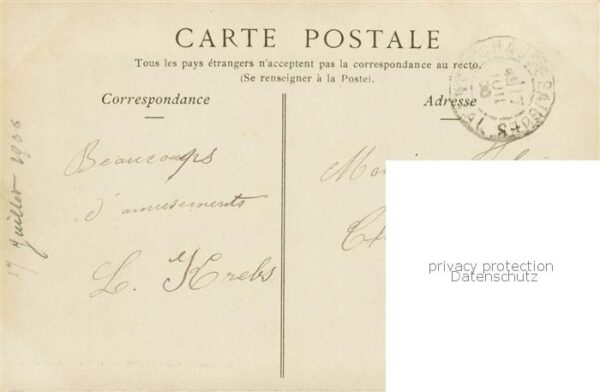 CARTE POSTALE
Tous les pays étrangers n'acceptent pas la correspondance au recto.
(Se renseigner à la Poste).
Correspondance
Adresse
17 JUIL
17 juillet 1906
Beaucoups
d'amusements
L. Krebs
privacy protection
Datenschutz